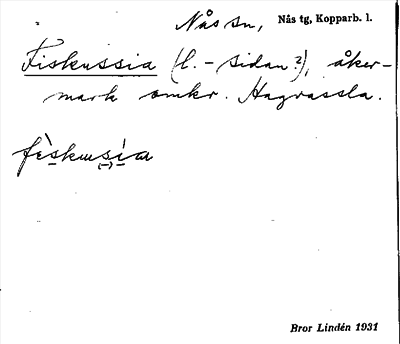 Nås sn, Nås tg, Kopparb. l.
Fiskussia (l. -sidan?), åker-
mark omkr. Hagrassla.
fìskusía
Bror Lindén 1931